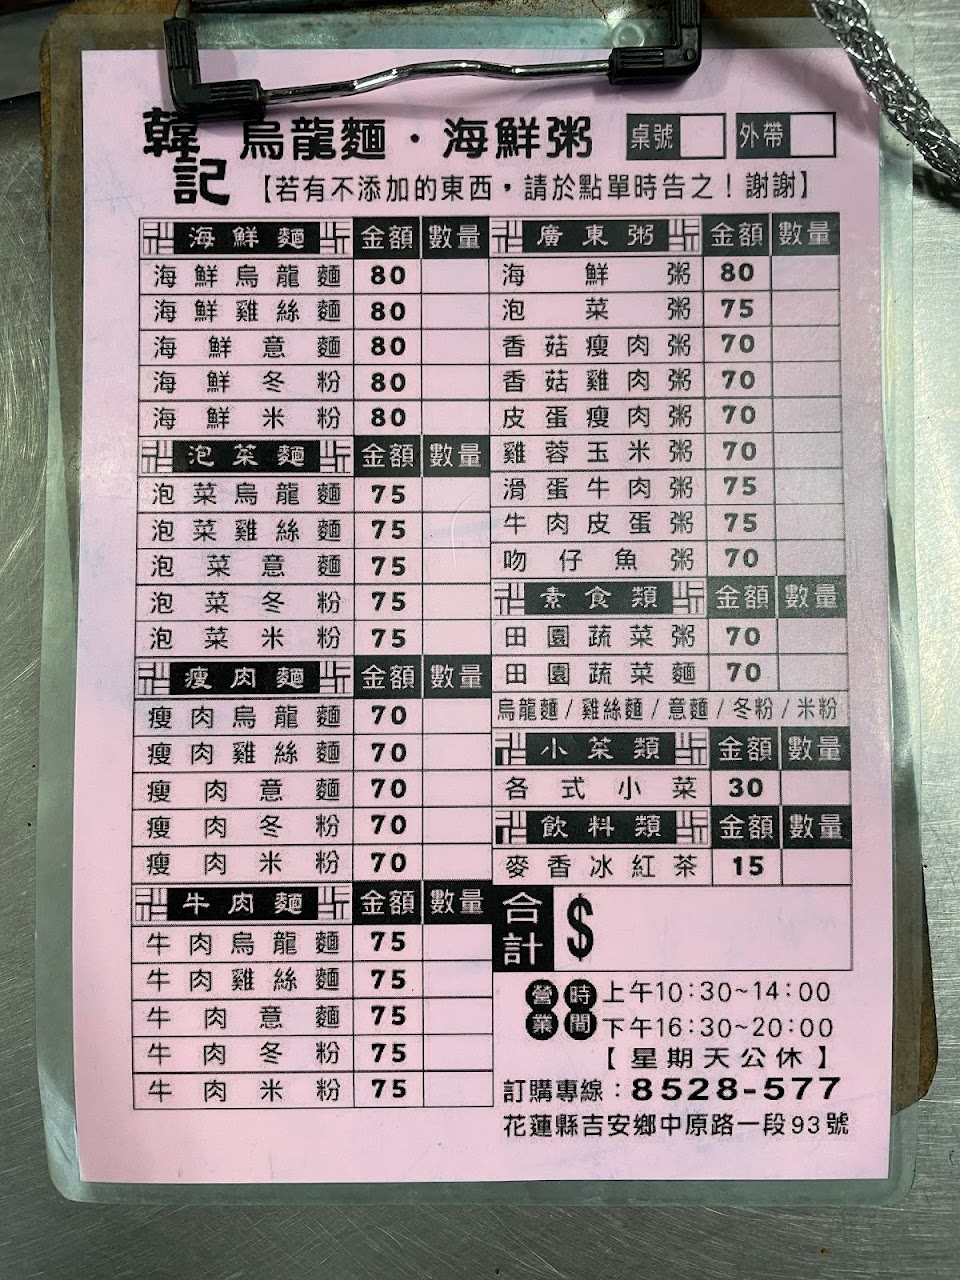 韓記 烏龍麵・海鮮粥 桌號 外帶
【若有不添加的東西，請於點單時告之！謝謝】
海鮮麵 金額 數量
海鮮烏龍麵 80
海鮮雞絲麵 80
海鮮意麵 80
海鮮冬粉 80
海鮮米粉 80
泡菜麵 金額 數量
泡菜烏龍麵 75
泡菜雞絲麵 75
泡菜意麵 75
泡菜冬粉 75
泡菜米粉 75
瘦肉麵 金額 數量
瘦肉烏龍麵 70
瘦肉雞絲麵 70
瘦肉意麵 70
瘦肉冬粉 70
瘦肉米粉 70
牛肉麵 金額 數量
牛肉烏龍麵 75
牛肉雞絲麵 75
牛肉意麵 75
牛肉冬粉 75
牛肉米粉 75
廣東粥 金額 數量
海鮮粥 80
泡菜粥 75
香菇瘦肉粥 70
香菇雞肉粥 70
皮蛋瘦肉粥 70
雞蓉玉米粥 70
滑蛋牛肉粥 75
牛肉皮蛋粥 75
吻仔魚粥 70
素食類 金額 數量
田園蔬菜粥 70
田園蔬菜麵 70
烏龍麵/雞絲麵/意麵/冬粉/米粉
小菜類 金額 數量
各式小菜 30
飲料類 金額 數量
麥香冰紅茶 15
合計 $
營業時間 上午10:30~14:00
下午16:30~20:00
【星期天公休】
訂購專線：8528-577
花蓮縣吉安鄉中原路一段93號